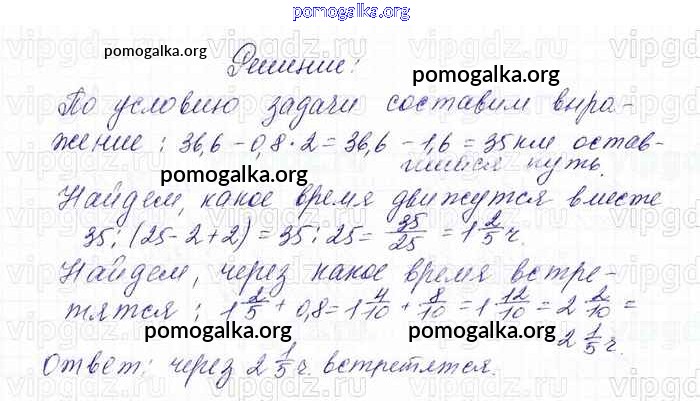 pomogalka.org
pomogalka.org
Решение:
pomogalka.org
По условию задачи составим выра-
жение: 36,6 - 0,8 · 2 = 36,6 - 1,6 = 35 км остав-
шийся путь.
pomogalka.org
Найдем, какое время движутся вместе
35 : (25 - 2 + 2) = 35 : 25 = 35/25 = 1 2/5 ч.
Найдем, через какое время встре-
тятся: 1 2/5 + 0,8 = 1 4/10 + 8/10 = 1 12/10 = 2 2/10 =
pomogalka.org
pomogalka.org
2 1/5 ч.
Ответ: через 2 1/5 ч. встретятся.